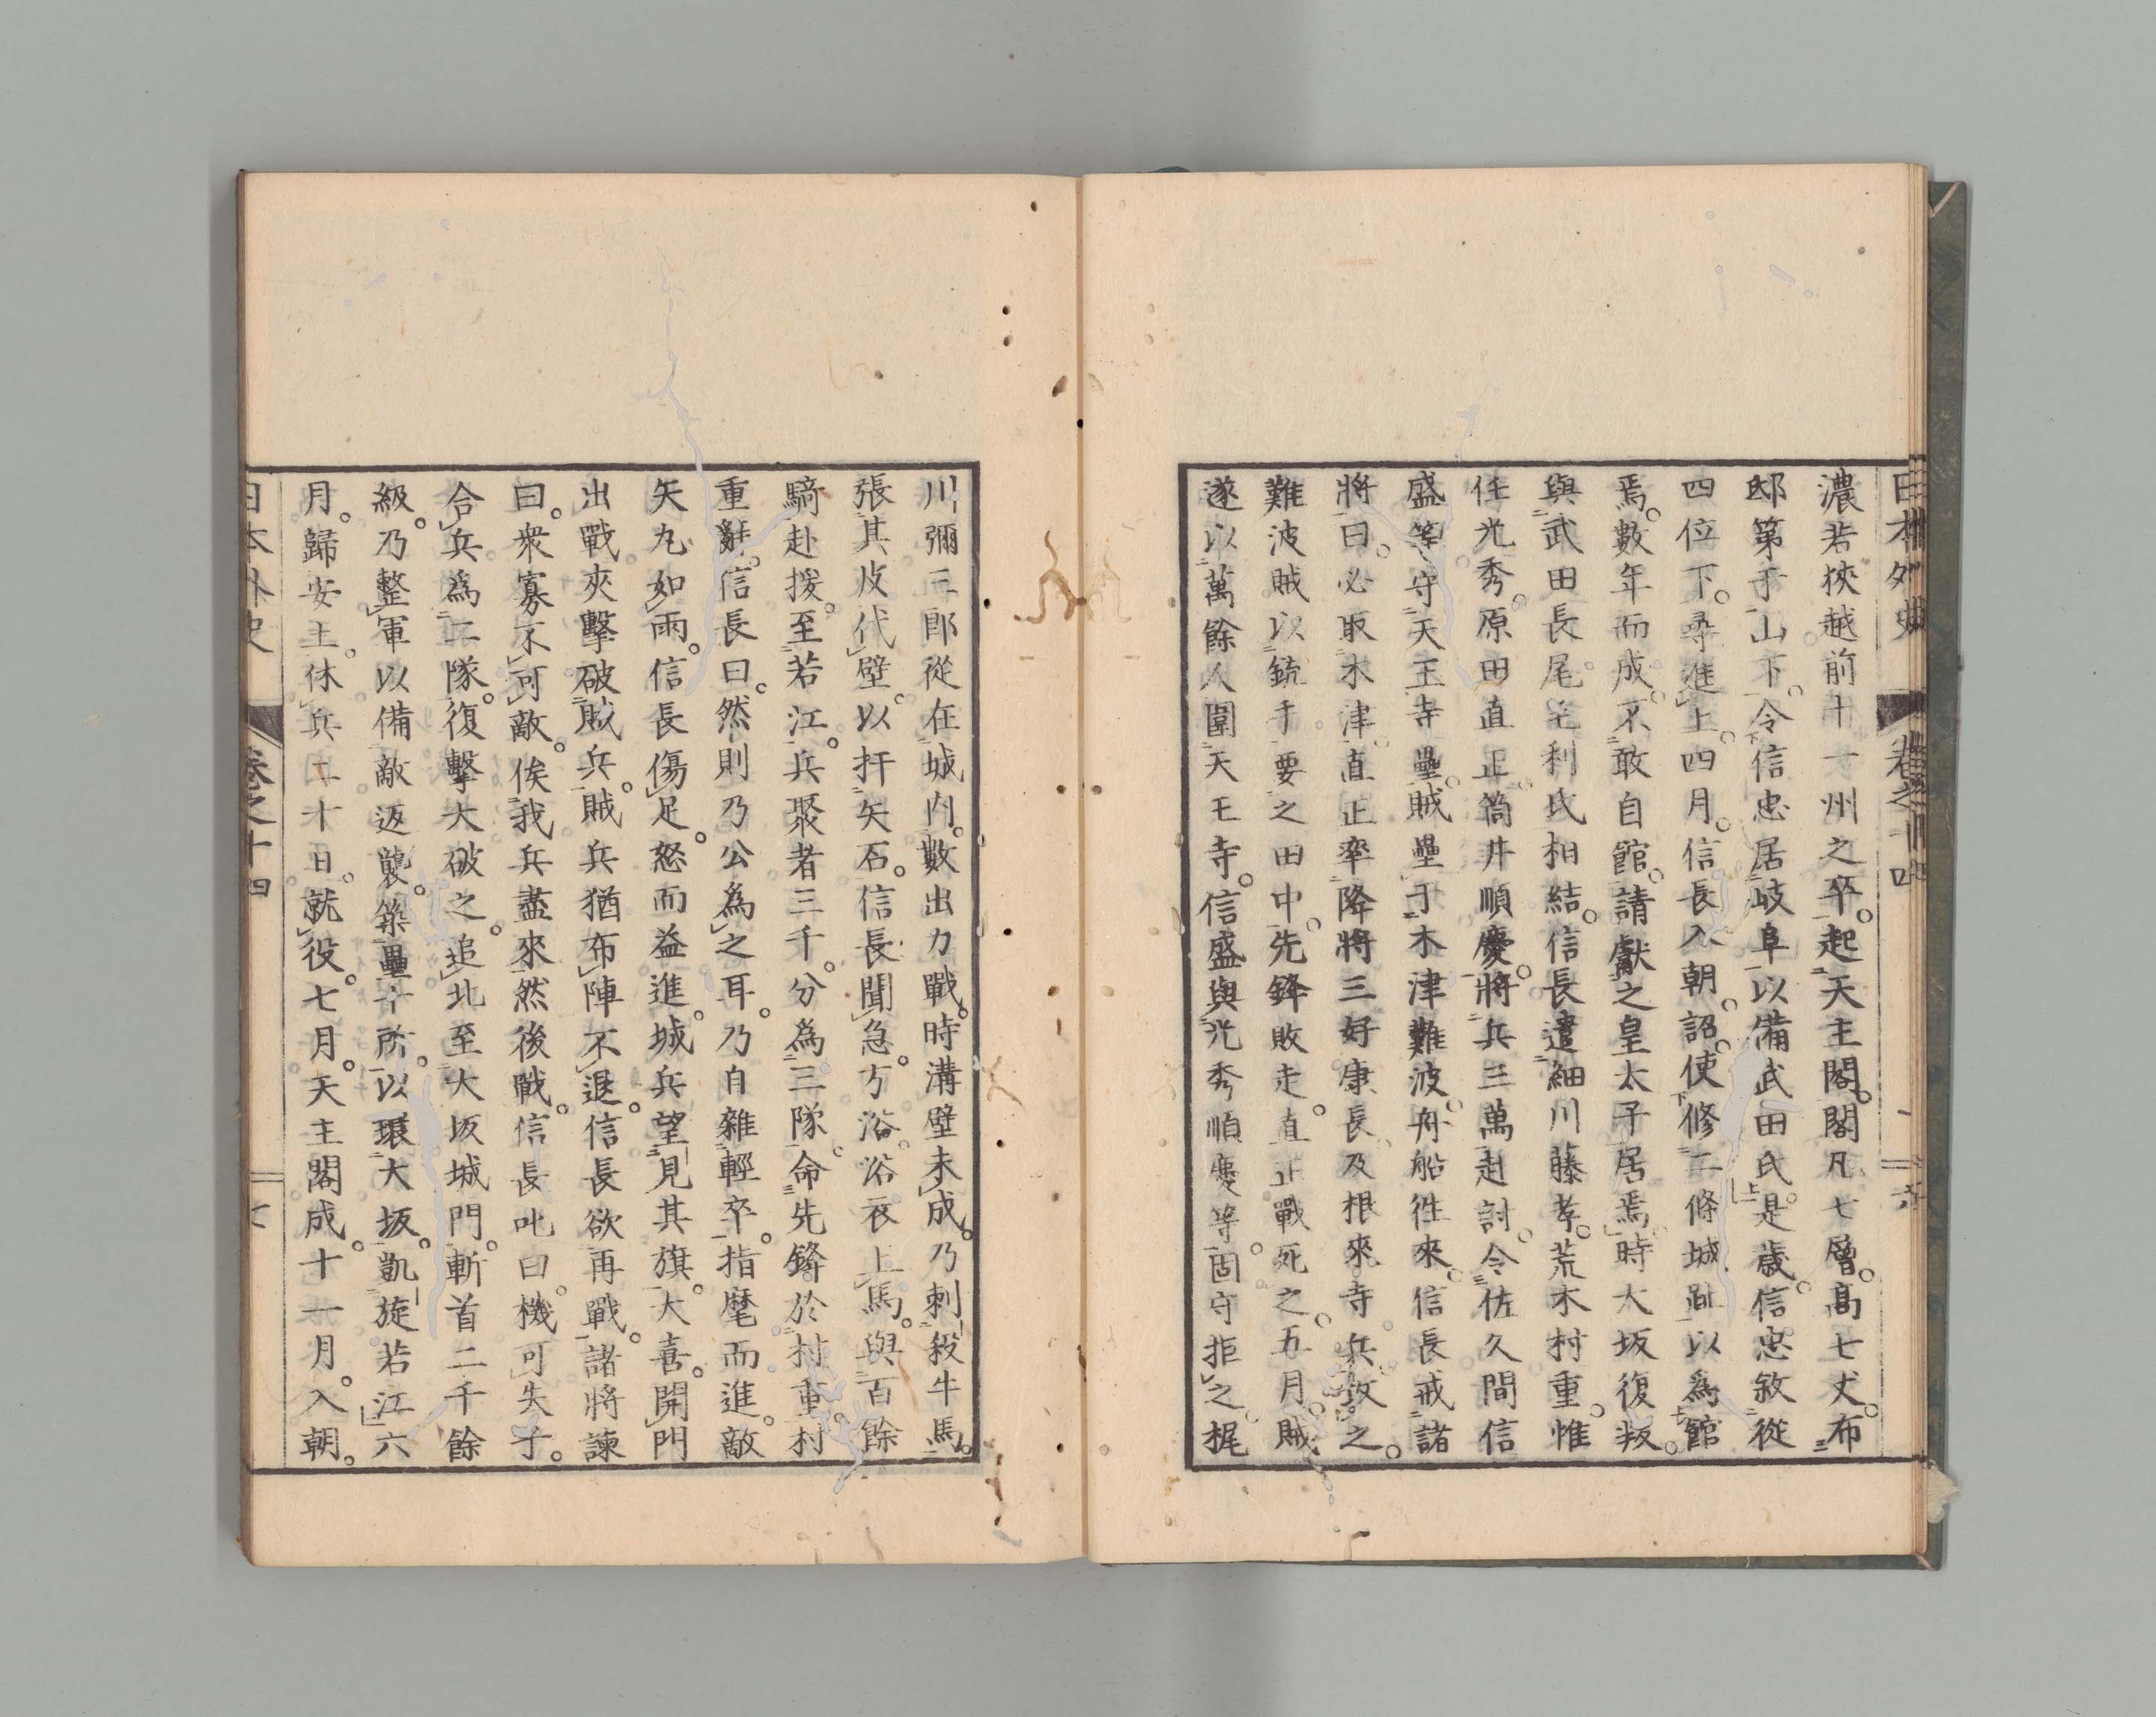 日本外史 卷之十四 六
濃若狹越前十一州之卒。起天主閣。閣凡七層。高七丈。布
邸第于山下。令信忠居岐阜以備武田氏。是歲。信忠敘從
四位下。尋進上。四月。信長入朝。詔使修二條城趾以爲館
焉。數年而成。不敢自館。請獻之皇太子居焉。時大坂復叛。
與武田長尾毛利氏相結。信長遣細川藤孝。荒木村重。惟
任光秀。原田直正。筒井順慶。將兵三萬赴討。令佐久間信
盛等守天王寺壘。賊壘于木津難波。舟船往來。信長戒諸
將曰。必取木津。直正率降將三好康長。及根來寺兵攻之。
難波賊以銃手要之田中。先鋒敗走。直正戰死之。五月。賊
遂以萬餘人圍天王寺。信盛與光秀順慶等固守拒之。梶
川彌三郎從在城內。數出力戰。時溝壁未成。乃刺殺牛馬。
張其皮代壁。以扞矢石。信長聞急。方浴。浴衣上馬。與百餘
騎赴援。至若江。兵聚者三千。分爲三隊。命先鋒於村重。村
重辭。信長曰。然則乃公爲之耳。乃自雜輕卒。指麾而進。敵
矢丸如雨。信長傷足。怒而益進。城兵望見其旗。大喜。開門
出戰。夾擊破賊兵。賊兵猶布陣不退。信長欲再戰。諸將諫
曰。衆寡不可敵。俟我兵盡來然後戰。信長叱曰。機可失乎。
合兵爲二隊。復擊大破之。追北至大坂城門。斬首二千餘
級。乃整軍以備敵返襲。築壘十所。以環大坂。凱旋若江。六
月。歸安土。休兵二十日。就役。七月。天主閣成。十一月。入朝。
日本外史 卷之十四 七